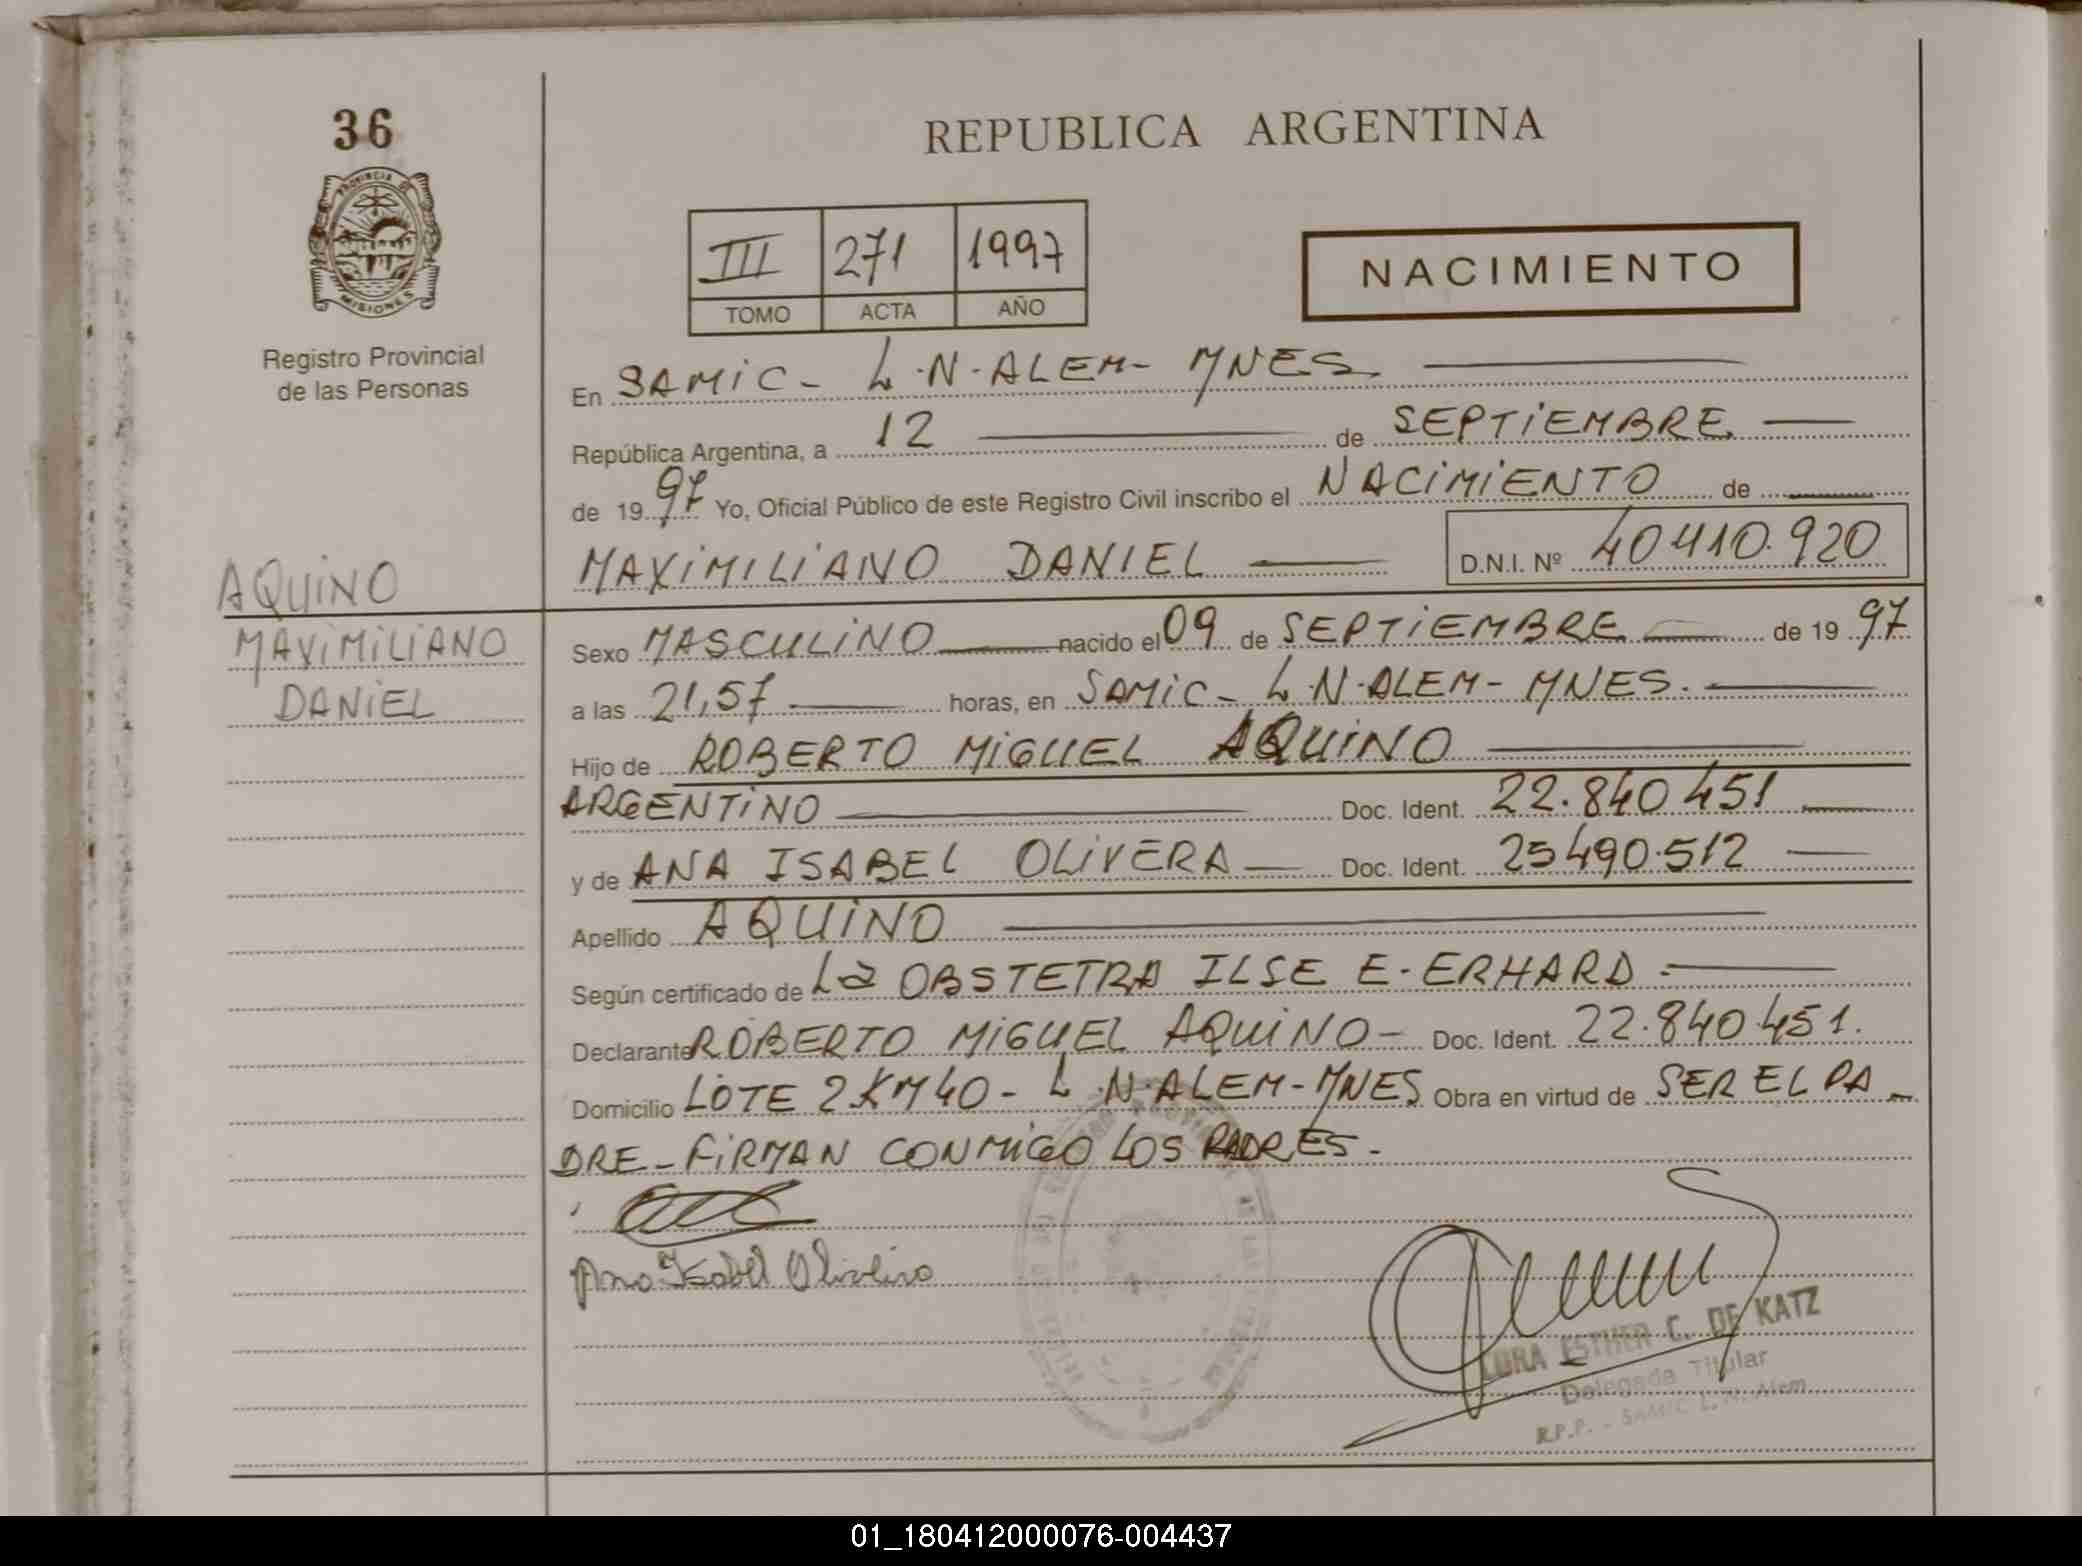 36
PROVINCIA DE
MISIONES
Registro Provincial
de las Personas
REPUBLICA ARGENTINA
III 271 1997
TOMO ACTA AÑO
NACIMIENTO
En SAMIC - L.N.ALEM - MNES
República Argentina, a 12 de SEPTIEMBRE
de 1997 Yo, Oficial Público de este Registro Civil inscribo el NACIMIENTO de
MAXIMILIANO DANIEL D.N.I. Nº 40410.920
AQUINO
MAXIMILIANO
DANIEL
Sexo MASCULINO nacido el 09 de SEPTIEMBRE de 1997
a las 21,57 horas, en SAMIC - L.N.ALEM - MNES.
Hijo de ROBERTO MIGUEL AQUINO
ARGENTINO Doc. Ident. 22.840.451
y de ANA ISABEL OLIVERA Doc. Ident. 25490.512
Apellido AQUINO
Según certificado de La OBSTETRA ILSE E. ERHARD.
Declarante ROBERTO MIGUEL AQUINO - Doc. Ident. 22.840.451.
Domicilio LOTE 2 KM 40 - L.N.ALEM - MNES Obra en virtud de SER EL PA
DRE - FIRMAN CONMIGO LOS PADRES -
Ana Isabel Oliveira
ESTHER C. DE KATZ
Delegada Titular
R.P.P. - SAMIC L. N. Alem
01_180412000076-004437